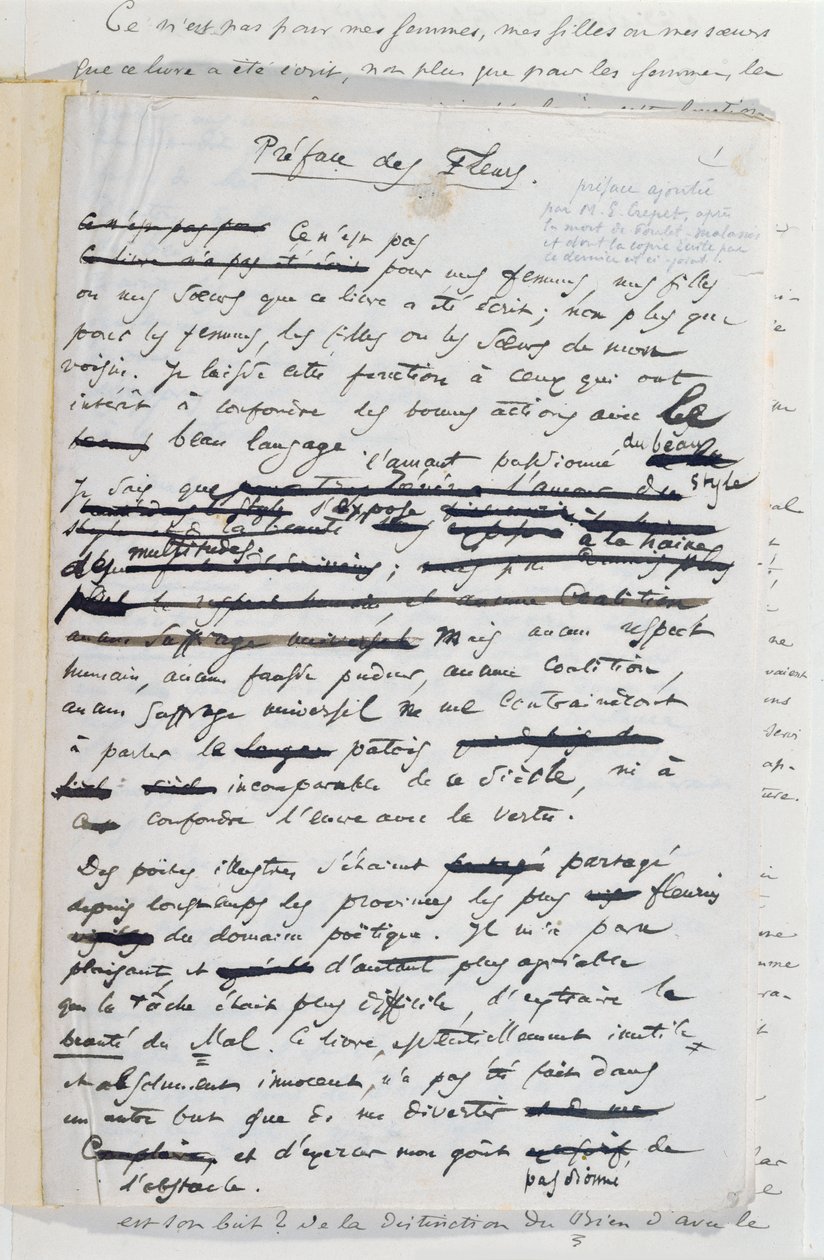 Ce n'est pas pour mes femmes, mes filles ou mes sœurs
que ce livre a été écrit, non plus que pour les femmes, les
Préface des Fleurs.
préface ajoutée
par M. E. Crepet, après
la mort de Poulet-Malassis
et dont la copie écrite par
ce dernier est ci-joint.
Ce n'est pas pour Ce n'est pas
Ce livre n'a pas été écrit pour mes femmes, mes filles
ou mes sœurs que ce livre a été écrit; non plus que
pour les femmes, les filles ou les sœurs de mon
voisin. Je laisse cette fonction à ceux qui ont
intérêt à confondre les bonnes actions avec le
beau langage.
Je sais que l'amant passionné du beau
style s'expose
à la haine
des multitudes;
Mais aucun respect
humain, aucune fausse pudeur, aucune coalition,
aucun suffrage universel ne me contraindront
à parler le patois
incomparable de ce siècle, ni à
confondre l'encre avec la vertu.
Des poëtes illustres s'étaient partagé
depuis longtemps les provinces les plus fleuries
du domaine poëtique. Il m'a paru
plaisant, et d'autant plus agréable
que la tâche était plus difficile, d'extraire la
beauté du Mal. Ce livre, essentiellement inutile
et absolument innocent, n'a pas été fait dans
un autre but que de me divertir et de me
et d'exercer mon goût excessif de
passionné
l'obstacle.
est son but? De la distinction du Bien d'avec le